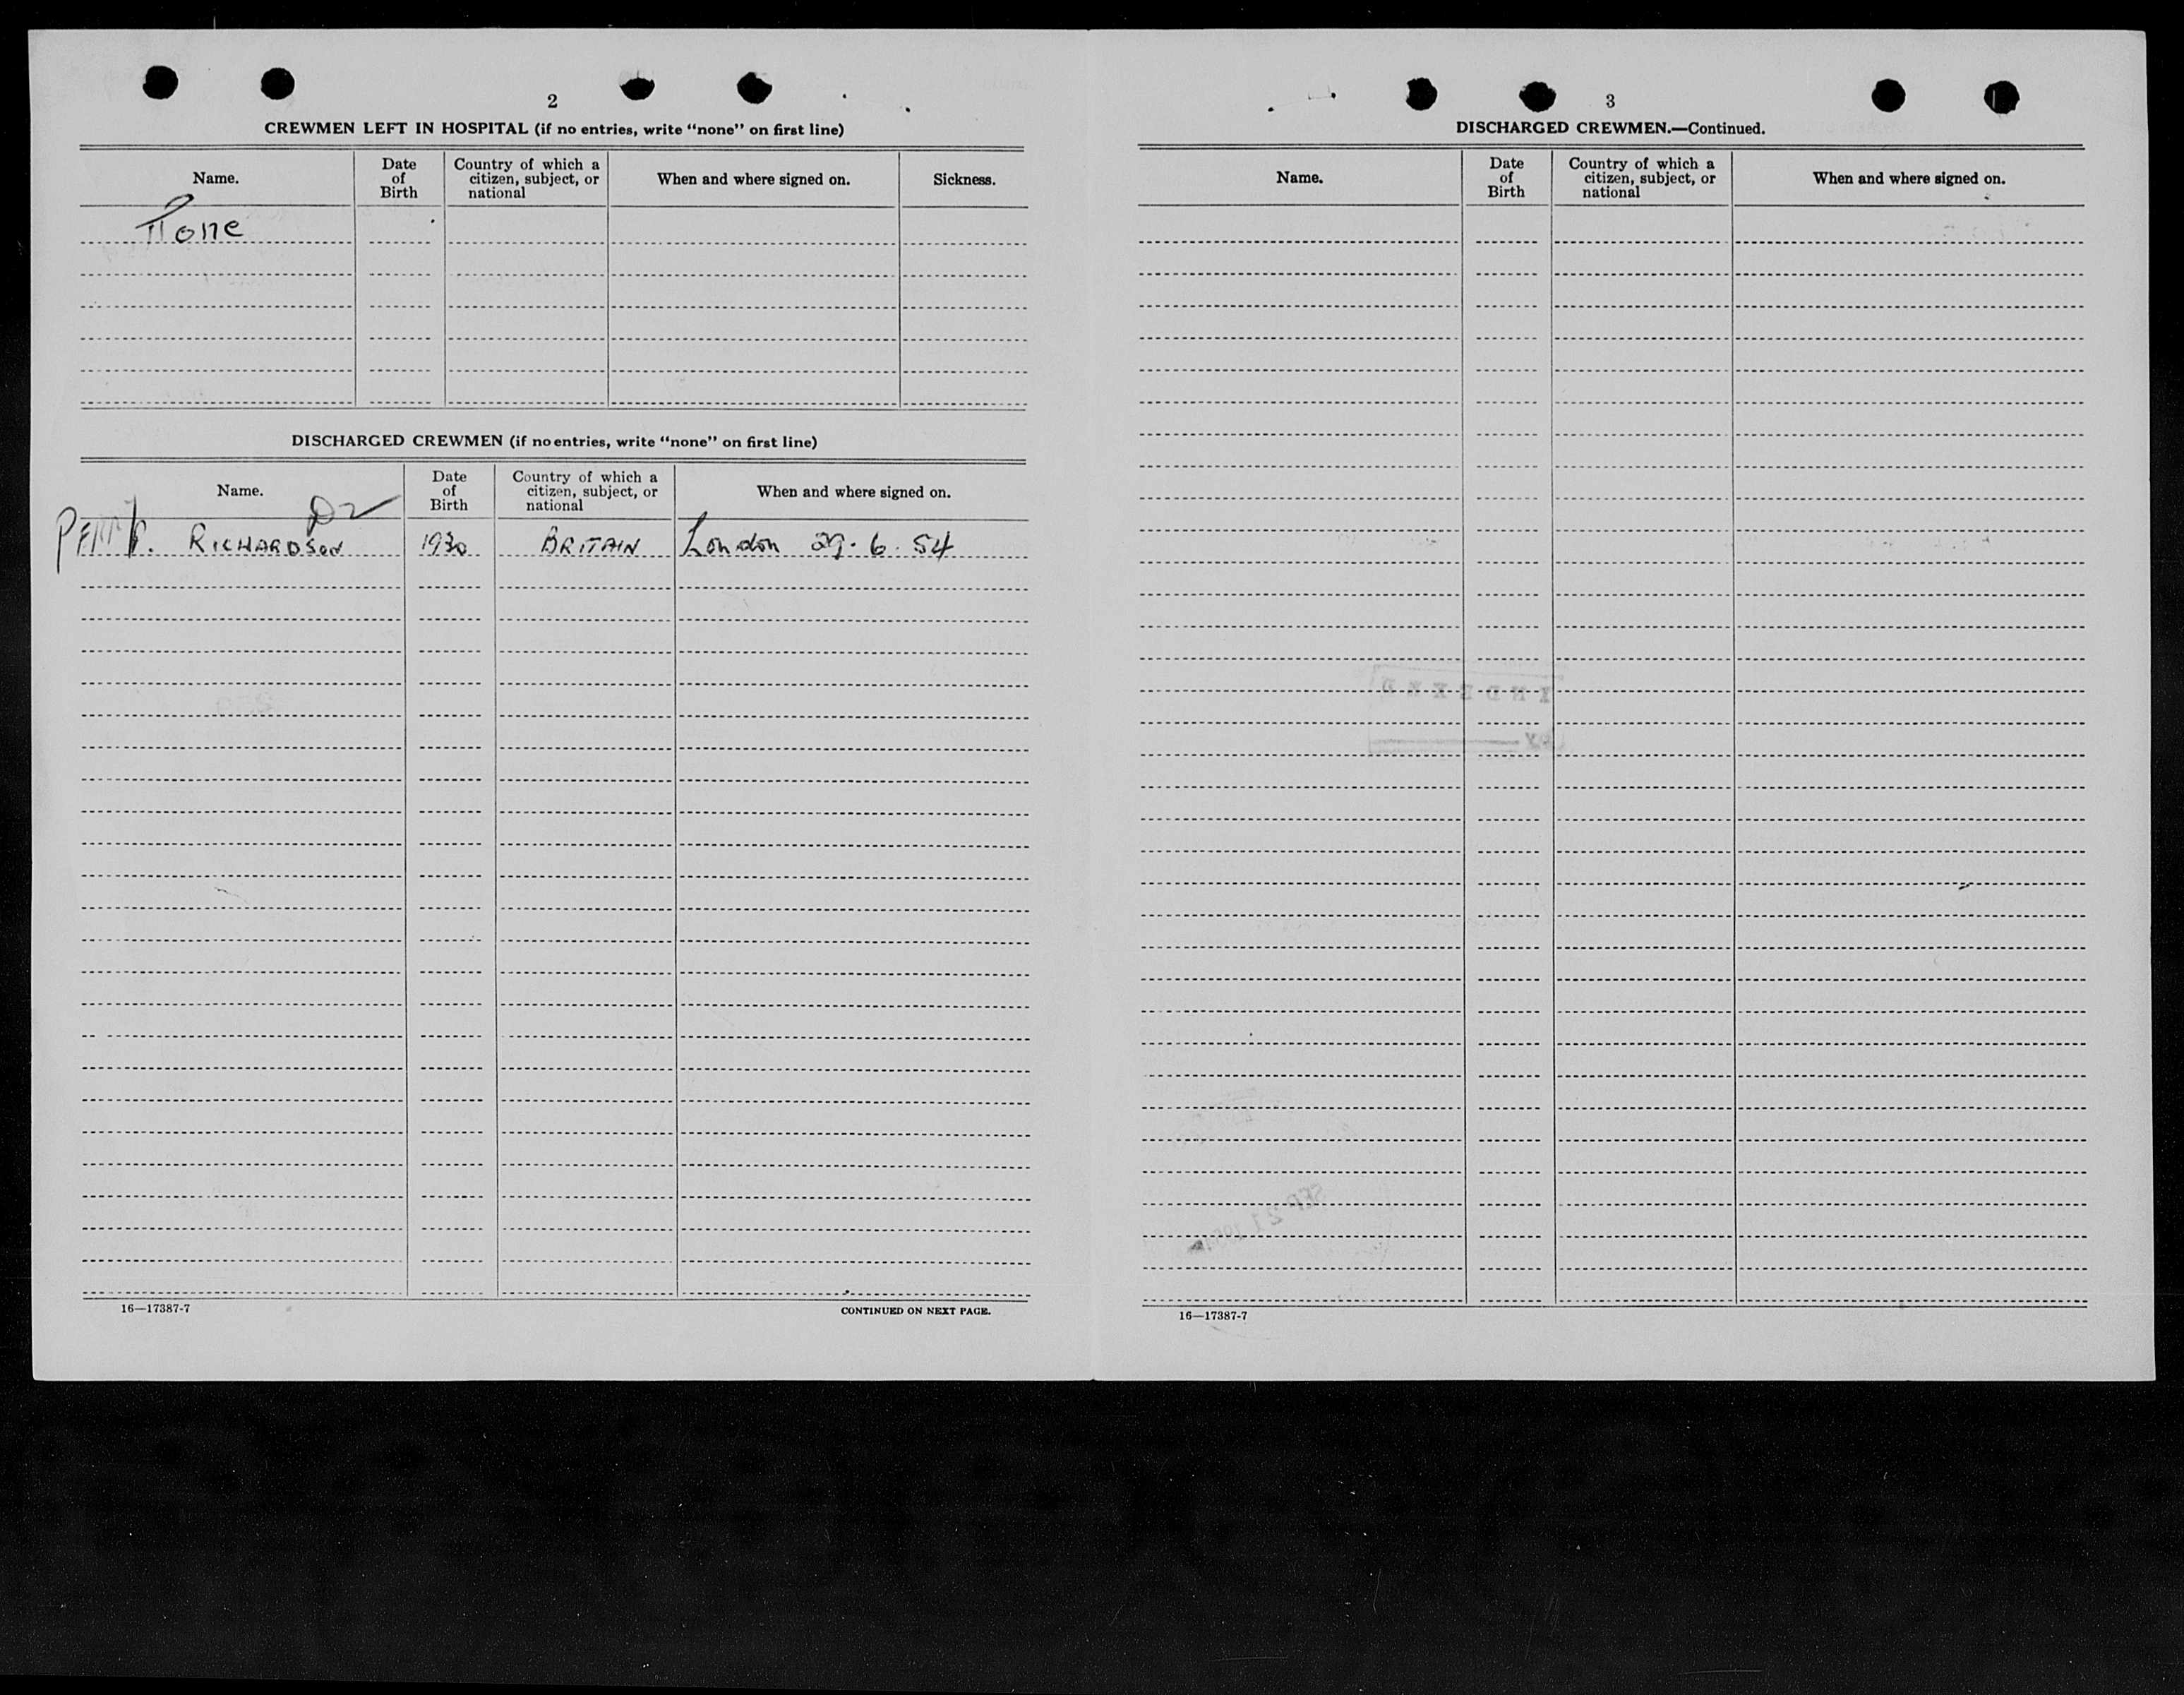 2
CREWMEN LEFT IN HOSPITAL (if no entries, write “none” on first line)
Name.
Date of Birth
Country of which a citizen, subject, or national
When and where signed on.
Sickness.
None
DISCHARGED CREWMEN (if no entries, write “none” on first line)
Name.
Date of Birth
Country of which a citizen, subject, or national
When and where signed on.
P. RICHARDSON 1930 BRITAIN London 29. 6. 54
16—17387-7
CONTINUED ON NEXT PAGE.
3
DISCHARGED CREWMEN.—Continued.
Name.
Date of Birth
Country of which a citizen, subject, or national
When and where signed on.
INDEXED
BY
SEP 21 1954
16—17387-7